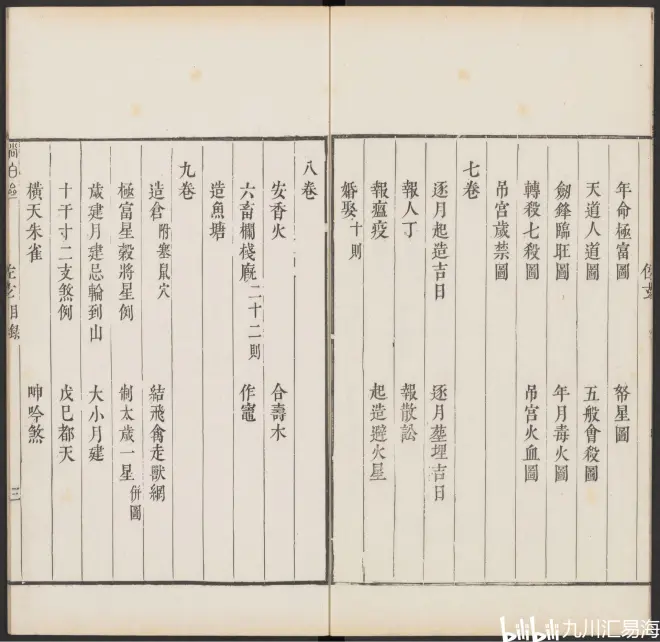 年命極富圖　帑星圖
天道人道圖　五般會殺圖
劒鋒臨𦔳圖　年月毒火圖
轉殺七殺圖　吊宮火血圖
吊宮歲禁圖
七卷
逐月起造吉日　逐月塟埋吉日
報人丁　報散訟
報瘟疫　起造避火星
婚娶十則
八卷
安香火　合壽木
六畜欄棧廐二十二則　作竈
造魚塘
九卷
造倉附塞鼠穴　結飛禽走獸網
極富星榖將星例　制太歲一星併圖
歲建月建忌輪到山　大小月建
十干寸二支煞例　戊巳都天
橫天朱雀　呻吟煞
目錄
三
bilibili 九川汇易海